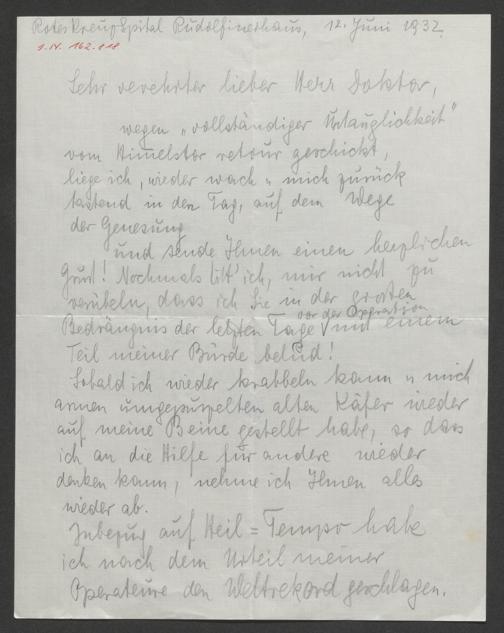 Rotes Kreuz Spital Rudolfinerhaus, 12. Juni 1932
I.N. 162.818
Sehr verehrter lieber Herr Doktor,
wegen „vollständiger Untauglichkeit"
vom Himmelstor retour geschickt,
liege ich, wieder wach u mich zurück
tastend in den Tag, auf dem Wege
der Genesung
und sende Ihnen einen herzlichen
Gruß! Nochmals bitt' ich, mir nicht zu
verübeln, dass ich Sie in der grossten
vor der Operation
Bedrängnis der letzten Tage mit einem
Teil meiner Bürde belud!
Sobald ich wieder krabbeln kann u mich
armen umgepurzelten alten Käfer wieder
auf meine Beine gestellt habe, so dass
ich an die Hilfe für andere wieder
denken kann, nehme ich Ihnen alles
wieder ab.
Inbezug auf Heil = Tempo habe
ich nach dem Urteil meiner
Operateure den Weltrekord geschlagen.